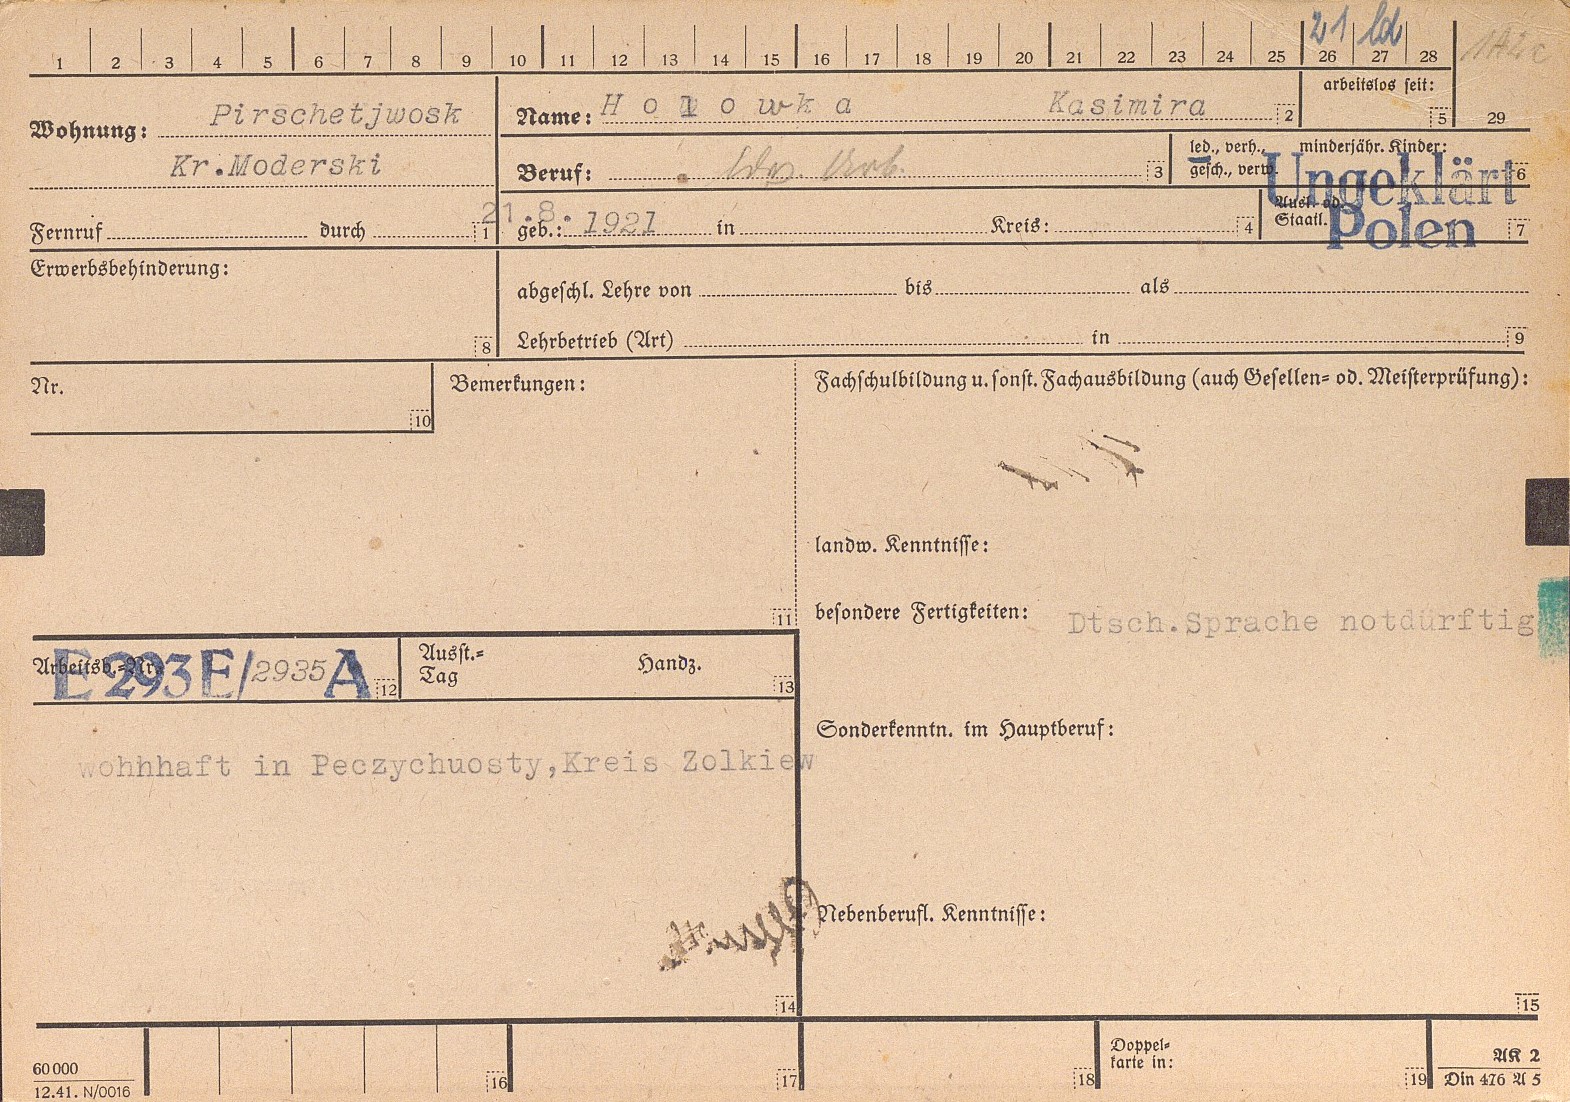 1 2 3 4 5 6 7 8 9 10 11 12 13 14 15 16 17 18 19 20 21 22 23 24 25 26 27 28 29
21 ld
Wohnung: Pirschetjwosk
Kr.Moderski
Name: Holowka Kasimira 2
arbeitslos seit: 5
Beruf: 3
led., verh., gesch., verw.
minderjähr. Kinder: 6
Fernruf durch 1
geb.: 21.8.1921 in Kreis: 4
Ausl. od. Staatl. 7
Ungeklärt
Polen
Erwerbsbehinderung: 8
abgeschl. Lehre von bis als
Lehrbetrieb (Art) in 9
Nr. 10
Bemerkungen: 11
Fachschulbildung u. sonst. Fachausbildung (auch Gesellen= od. Meisterprüfung):
landw. Kenntnisse:
besondere Fertigkeiten: Dtsch.Sprache notdürftig
Arbeitsb.=Nr. E 293 E/2935 A 12
Ausst.=
Tag Handz. 13
wohhhaft in Peczychuosty,Kreis Zolkiew
14
Sonderkenntn. im Hauptberuf:
Nebenberufl. Kenntnisse:
15
60 000
12.41. N/0016
16 17 18
Doppel=
karte in: 19
AK 2
Din 476 A 5